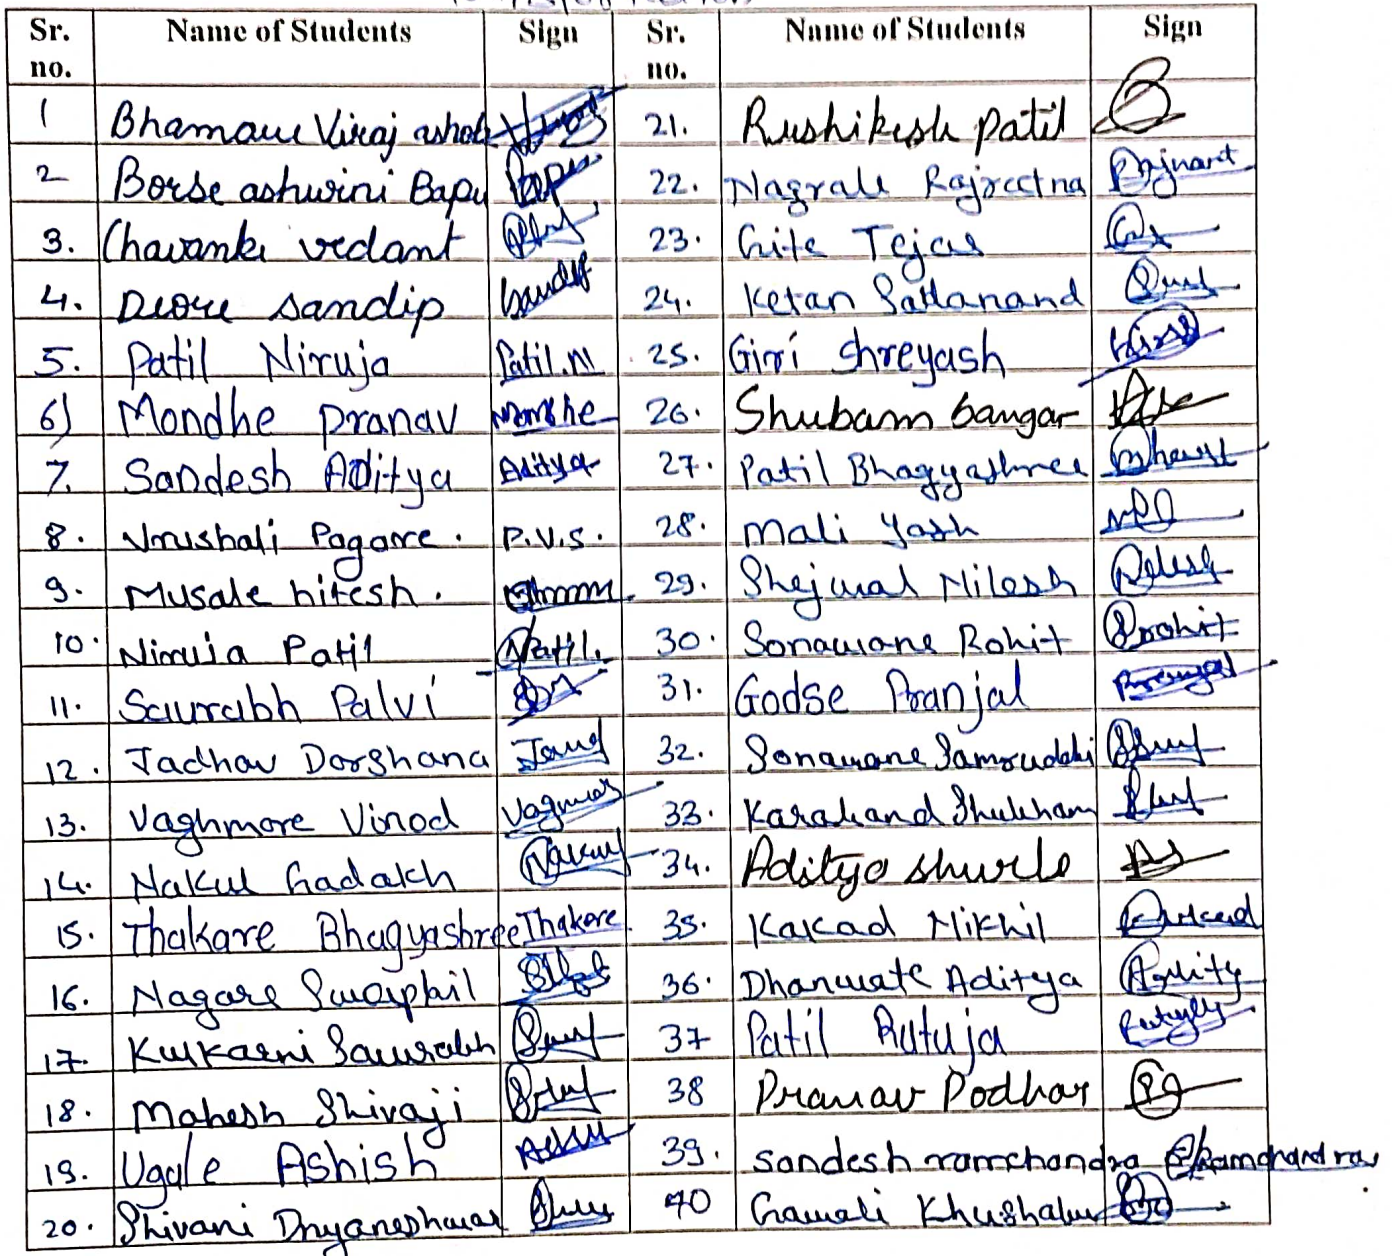 Sr. no. Name of Students Sign Sr. no. Name of Students Sign
1 Bhamare Viraj ashok 21. Rushikesh patil
2 Borse ashwini Bapu 22. Nagrale Rajreetna Rajnant
3. Chavanke vedant 23. Gite Tejas
4. Deore Sandip Sandip 24. Ketan Sattanand
5. Patil Niruja Patil.N 25. Giri Shreyash
6) Mondhe Pranav Mondhe 26. Shubam bangar
7. Sandesh Aditya Aditya 27. Patil Bhagyashree
8. Vrushali Pagare. P.V.S. 28. Mali Yash
9. Musale hitesh. 29. Shejwal Nilesh
10. Niruja Patil NPatil. 30. Sonawane Rohit Srohit
11. Saurabh Palvi 31. Godse Pranjal Pranjal
12. Jadhav Darshana 32. Sonawane Samruddhi
13. Vaghmore Vinod 33. Karahand Shubham
14. Nakul Gadakh Nakul 34. Aditya Shurle
15. Thakare Bhagyashree Thakare 35. Kakad Nikhil
16. Nagare Swapnil 36. Dhanwate Aditya
17. Kulkarni Saurabh 37 Patil Rutuja
18. Mahesh Shivaji 38 Pranav Podhar
19. Ugale Ashish 39. Sandesh ramchandra Ramchandra
20. Shivani Dnyaneshwar 40 Gawali Khushabu